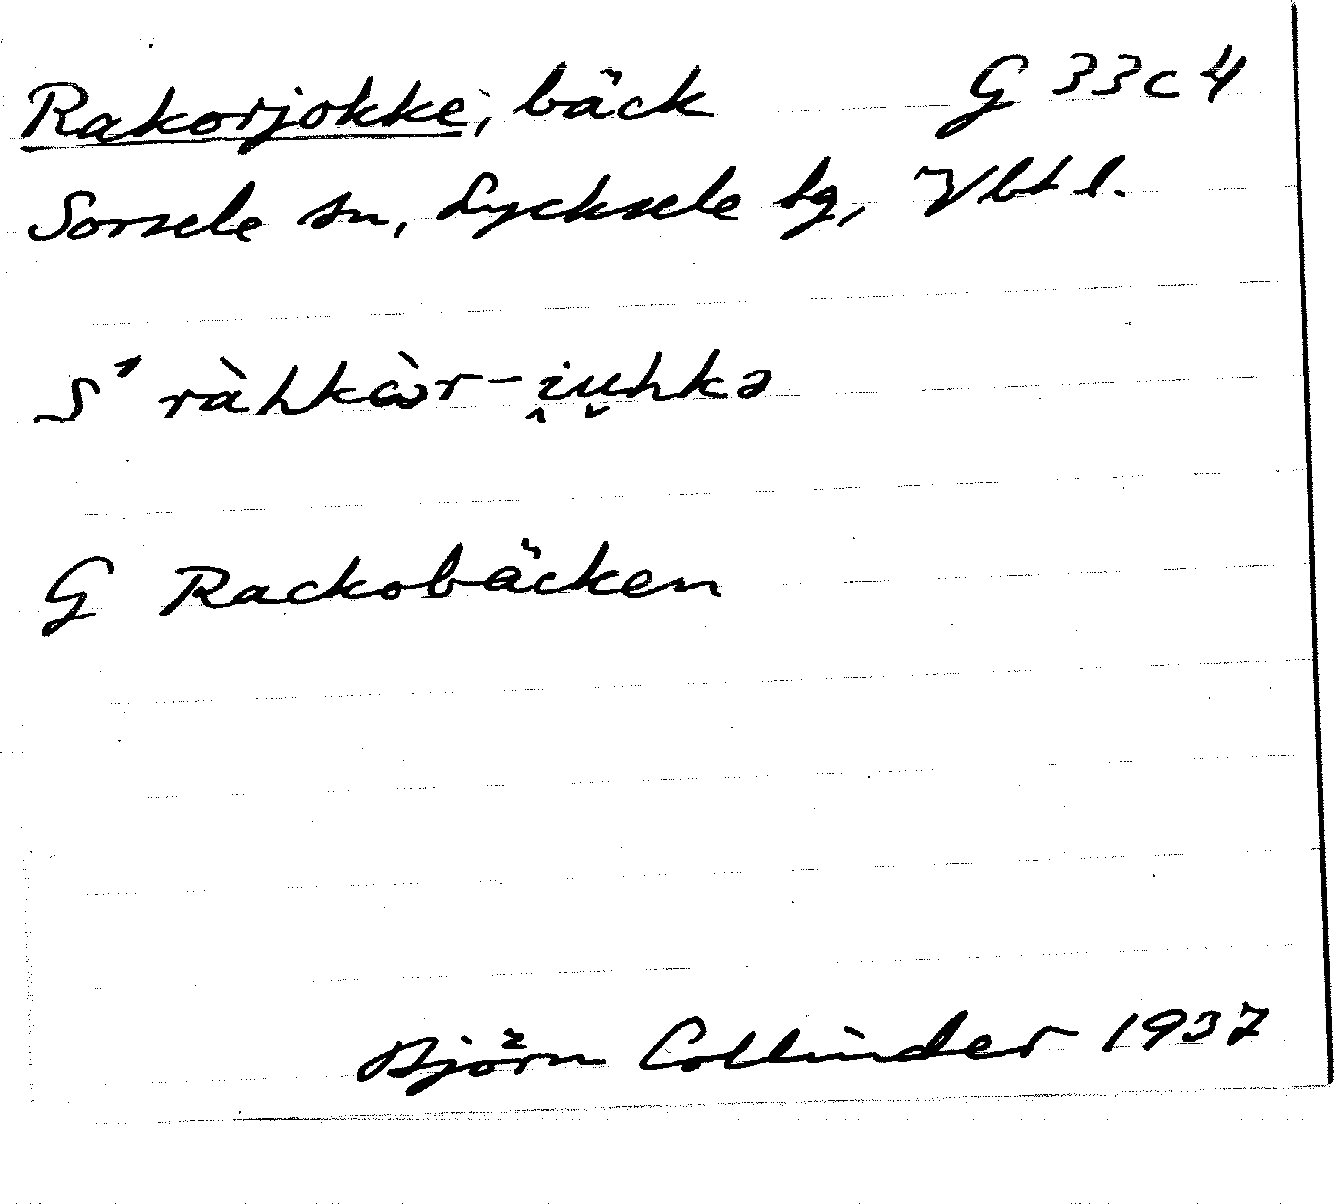 Rakorjokke, bäck G 33c4
Sorsele sn, Lycksele lg, Vbtl.
S' ràhkὼr-i̯u̯hkə
G Rackobäcken
Björn Collinder 1937